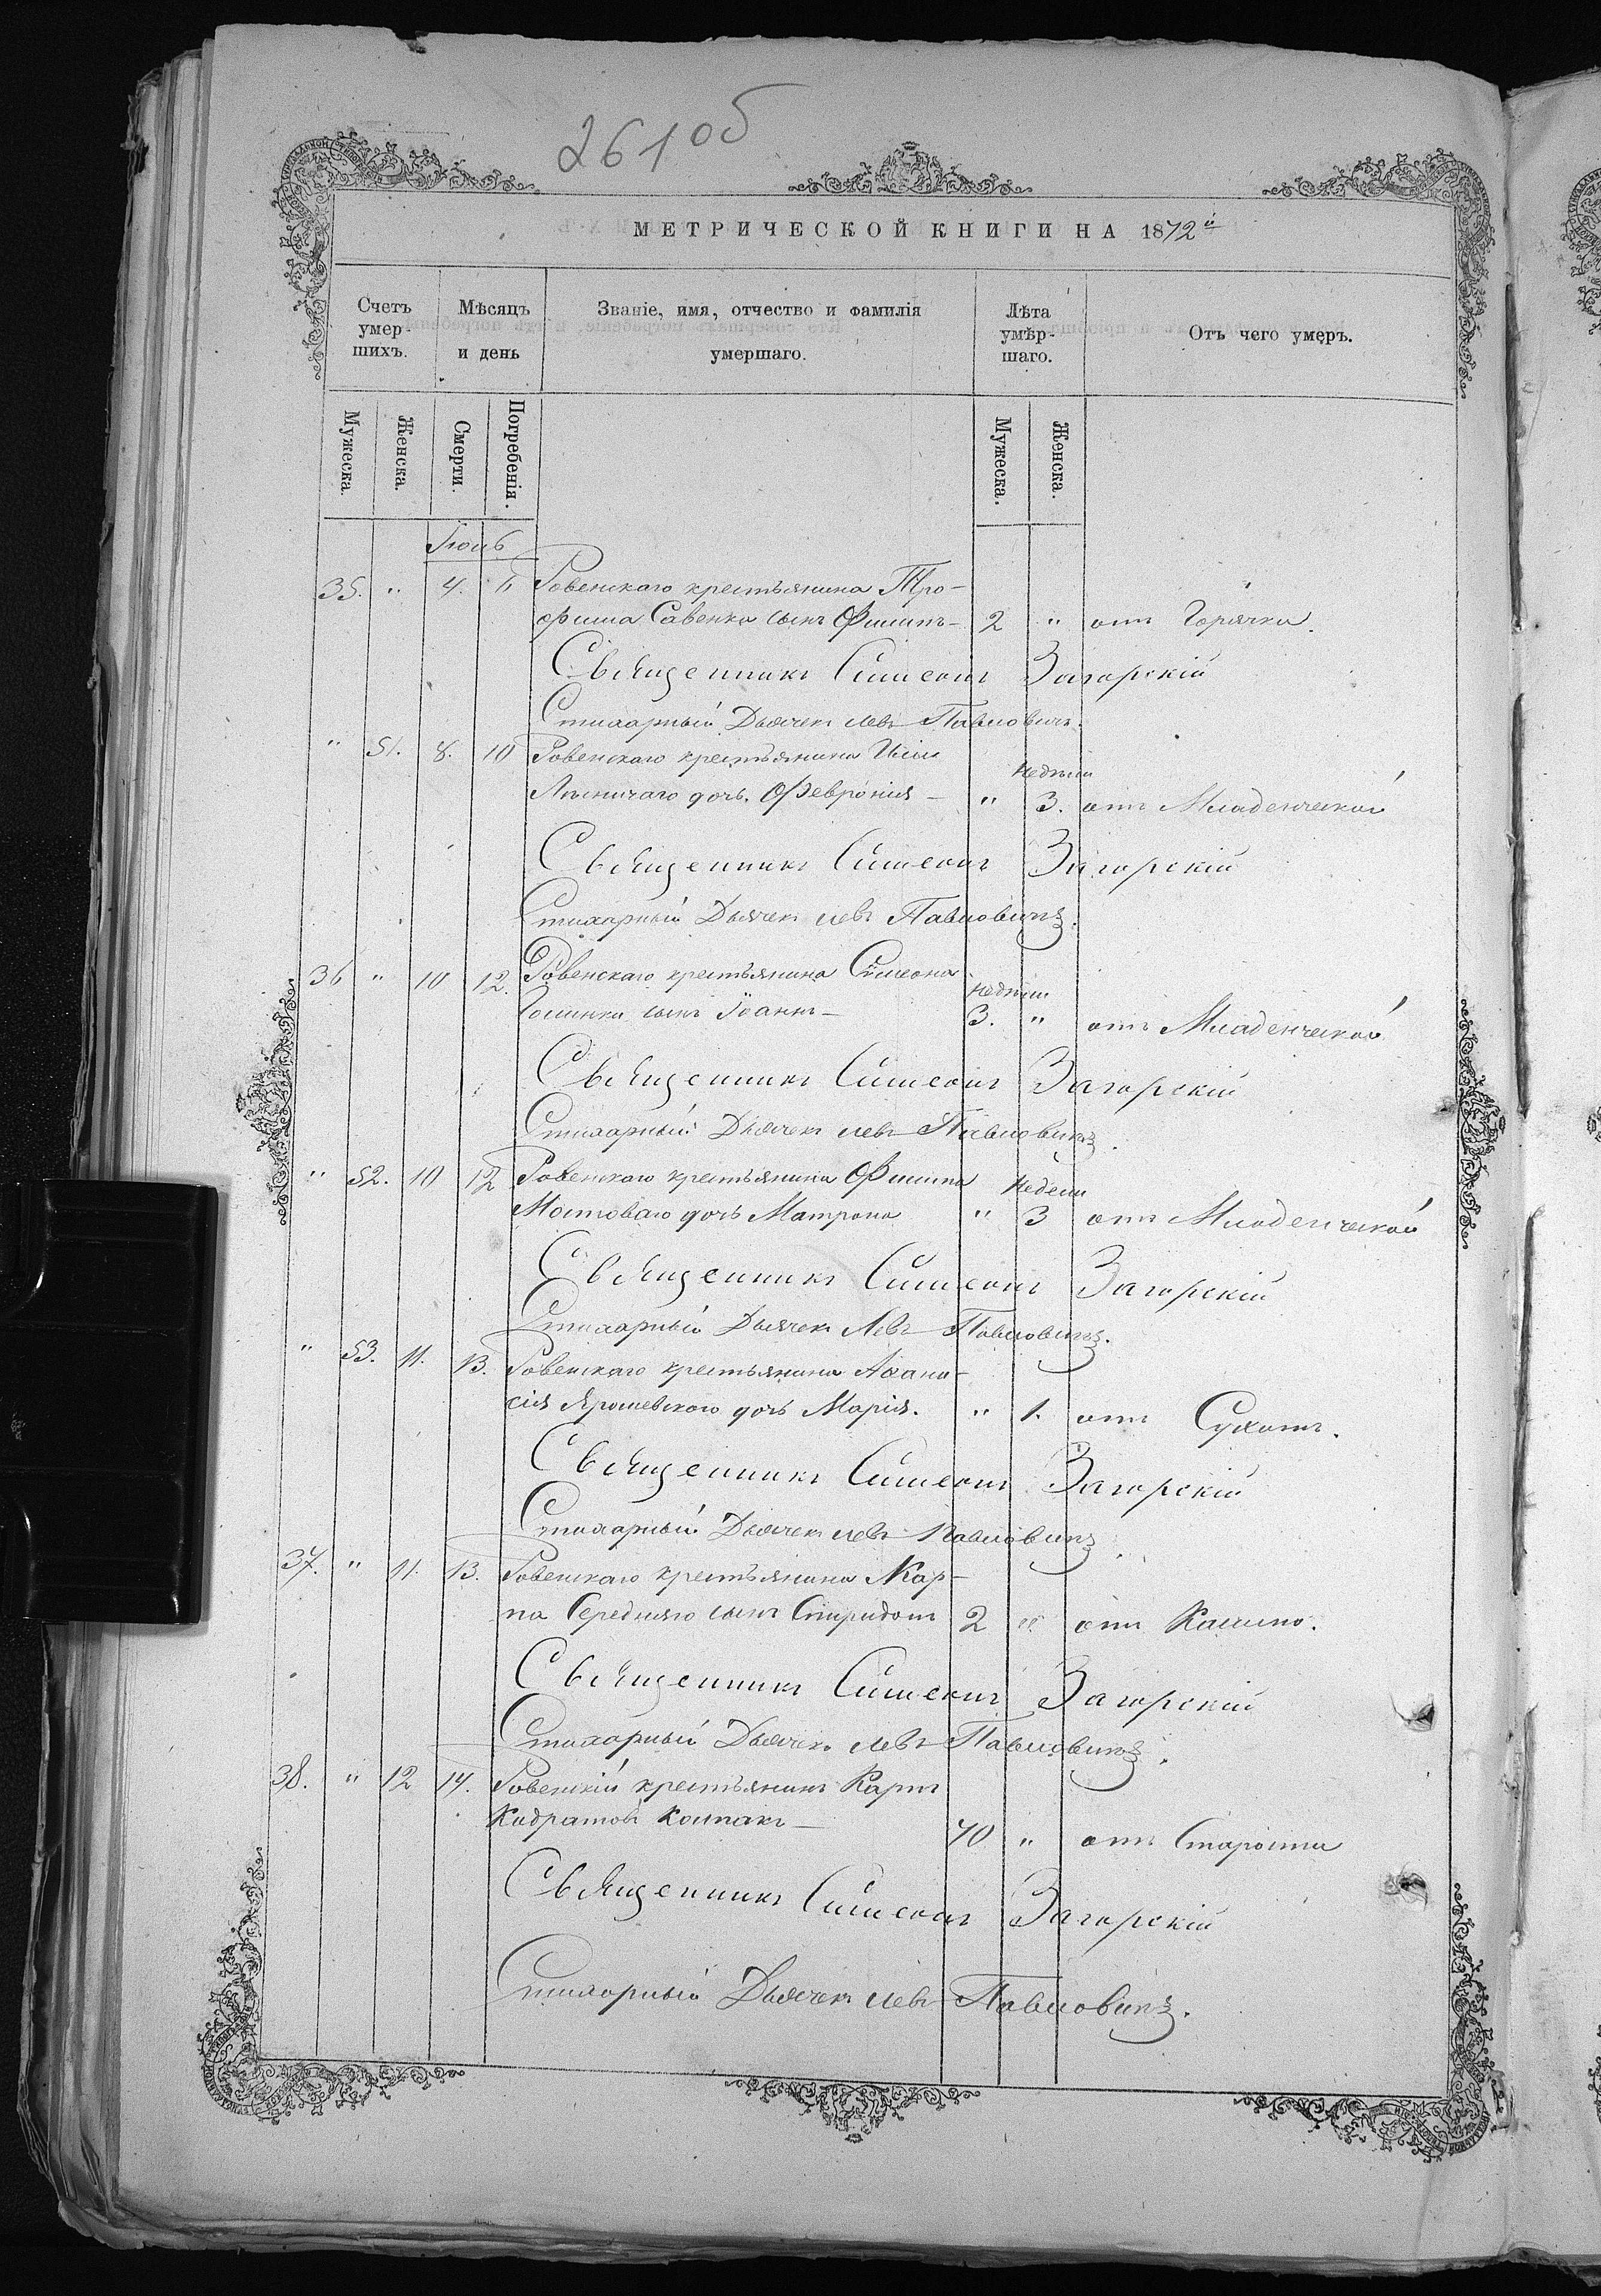 261об
МЕТРИЧЕСКОЙ КНИГИ НА 1872й
Счетъ умер-шихъ.
Мѣсяцъ и день
Званіе, имя, отчество и фамилія умершаго.
Лѣта умѣр-шаго.
Отъ чего умеръ.
Мужеска.
Женска.
Смерти.
Погребенія.
Мужеска.
Женска.
Іюнь
35. " 4. 6 Ровенскаго крестьянина Тро-
фима Савенка сынъ Филипъ - 2 " отъ Горячки.
Священникъ Симеонъ Загорскій
Стихарный Дьячекъ Левъ Павловичъ.
" 51. 8. 10 Ровенскаго крестьянина
дочь Февронія - " Недѣли 3. отъ Младенческой
Священникъ Симеонъ Загорскій
Стихарный Дьячекъ Левъ Павловичъ.
36 " 10 12. Ровенскаго крестьянина Симеона
сынъ Іоаннъ - Недѣли 3. " отъ Младенческой
Священникъ Симеонъ Загорскій
Стихарный Дьячекъ Левъ Павловичъ.
" 52. 10 12 Ровенскаго крестьянина Филипа
Мостоваго дочь Матрона " Недели 3 отъ Младенческой
Священникъ Симеонъ Загорскій
Стихарный Дьячекъ Левъ Павловичъ.
" 53. 11. 13. Ровенскаго крестьянина Аѳана-
сія Ярошевскаго дочь Марія. " 1. отъ Сухотъ.
Священникъ Симеонъ Загорскій
Стихарный Дьячекъ Левъ Павловичъ.
37. " 11. 13. Ровенскаго крестьянина Кар-
па Середняго сынъ Спиридонъ 2 " отъ Кашлю.
Священникъ Симеонъ Загорскій
Стихарный Дьячекъ Левъ Павловичъ.
38. " 12 14. Ровенскій крестьянинъ Карпъ
Кодратовъ Колпакъ - 70 " отъ Старости
Священникъ Симеонъ Загорскій
Стихарный Дьячекъ Левъ Павловичъ.